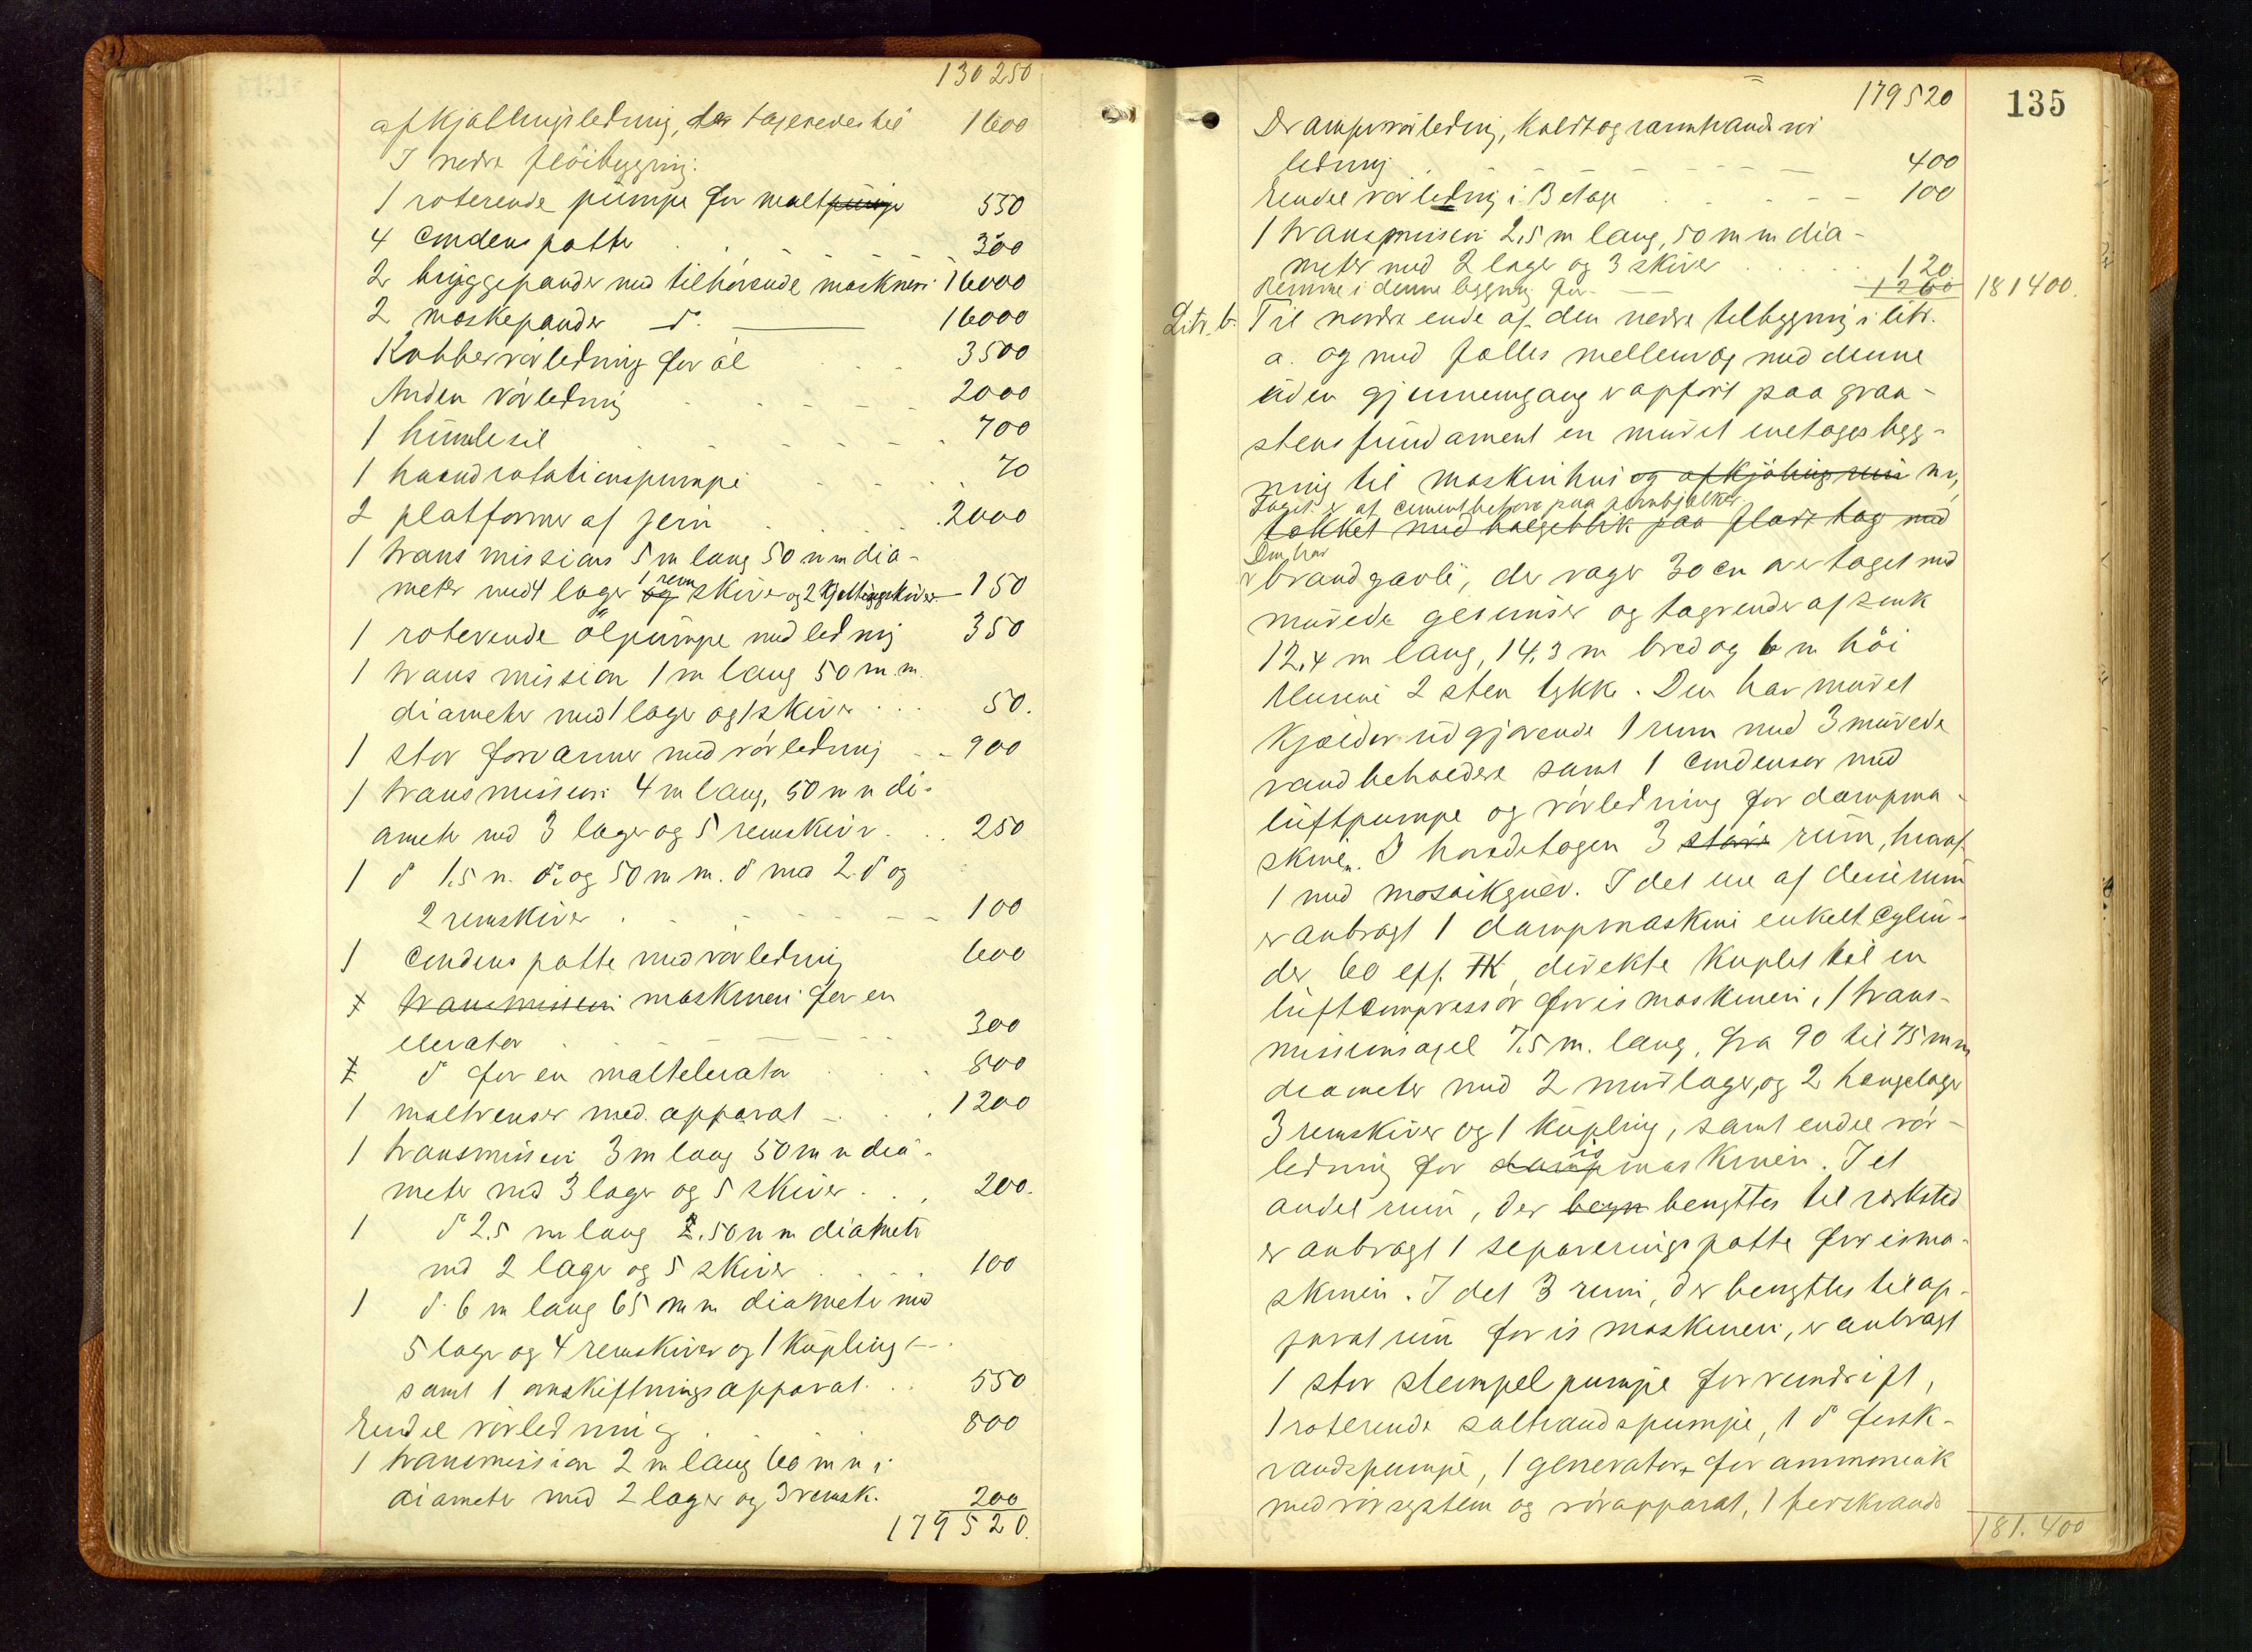 130 250
afkjølingsledning, der tageredes til 1600
I nedre fløibygning:
1 roterende pumpe for malt pumpe 550
4 Condenspotter 300
2 bryggepander med tilhørende maskineri 16000
2 maskepander do. 16000
Kobberrørledning for øl 3500
Anden rørledning 2000
1 humlesil 700
1 haandrotationspumpe 70
2 platformer af jern 2000
1 transmission 5 m lang 50 mm dia-
meter med 4 lager og 1 rem skive og 2 Kjettingskiver 150
1 roterende ølpumpe med ledning 350
1 transmission 1 m lang 50 m.m.
diameter med 1 lager og 1 skive 50.
1 stor forvarmer med rørledning 900
1 transmission 4 m lang, 50 mm di-
ameter med 3 lager og 5 remskiver 250
1 do 1.5 m. do. og 50 m.m. do med 2 do og
2 remskiver 100
1 Condenspotte med rørledning 600
1 transmission maskineri for en
elevator 300
1 do for en maltelevator 800
1 maltrenser med apparat 1200
1 transmission 3 m lang 50 mm dia-
meter med 3 lager og 5 skiver 200.
1 do 2.5 m lang 50 mm diameter
med 2 lager og 5 skiver 100
1 do. 6 m lang 65 mm diameter med
5 lager og 4 remskiver og 1 kupling
samt 1 omskiftningsapparat 550
Endel rørledning 800
1 transmission 2 m lang 60 mm i
diameter med 2 lager og 3 remsk. 200
179520.
179520
135
Dampvarmeledning, koldt og varmtvands rør
ledning 400
Endel rørledning i 3 etage 100
1 transmission 2,5 m lang, 50 mm dia-
meter med 2 lager og 3 skiver 120
Remme i denne bygning for 1260 181400.
Litr. b. Til nordre ende af den nedre tilbygning i litr.
a. og med fælles mellemvæg med denne
uden gjennemgang er opført paa graa-
stensfundament en muret enetages byg-
ning til maskinhus og afkjølingsrum m,
Taget er af cementbeton paa jernbjelker
tækket med bølgeblik paa fladt tag med
Den har
brandgavle, der rager 30 cm over taget med
murede gesimser og tagrender af zink
12,4 m lang, 14,3 m bred og 6 m høi
Murene 2 sten tykke. Den har muret
Kjælder udgjørende 1 rum med 3 murede
vandbeholdere samt 1 Condensor med
luftpumpe og rørledning for dampma-
skinen. I hovedetagen 3 store rum, hvoraf
1 med mosaikgulv. I det ene af disse rum
er anbragt 1 dampmaskine enkelt Cylin-
der 60 eff. HK, direkte kuplet til en
luftcompressor for ismaskineri, 1 trans-
missionsaxel 7.5 m. lang, fra 90 til 75 mm
diameter med 2 murlager, og 2 hængelager
3 remskiver og 1 kupling, samt endel rør-
ledning for damp is maskineri. I et
andet rum, der beyn benyttes til verksted
er anbragt 1 separeringspotte for isma-
skineri. I det 3 rum, der benyttes til ap-
paratrum for ismaskineri, er anbragt
1 stor stempelpumpe for remdrift,
1 roterende saltvandspumpe, 1 do fersk-
vandspumpe, 1 generator for ammoniak
med rørsystem og rørapparat, 1 ferskvands
181.400